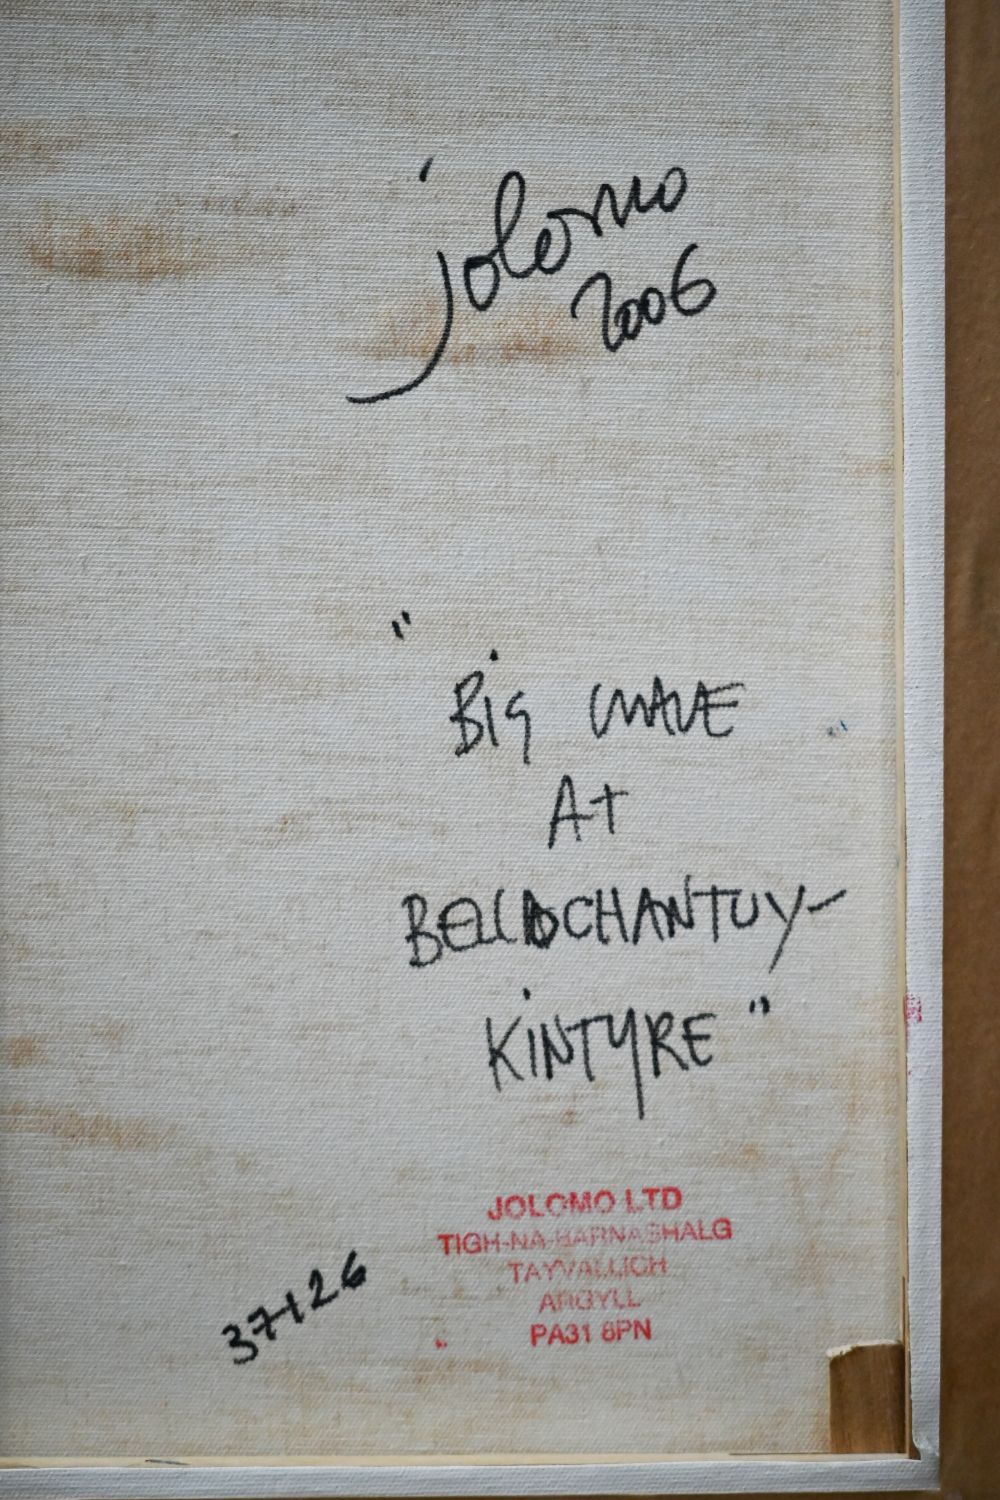 jolomo
2006
"
BIG WAVE
AT
BELLOCHANTUY-
KINTYRE"
JOLOMO LTD
TIGH-NA-BARNASHALG
TAYVALLICH
ARGYLL
PA31 8PN
37126